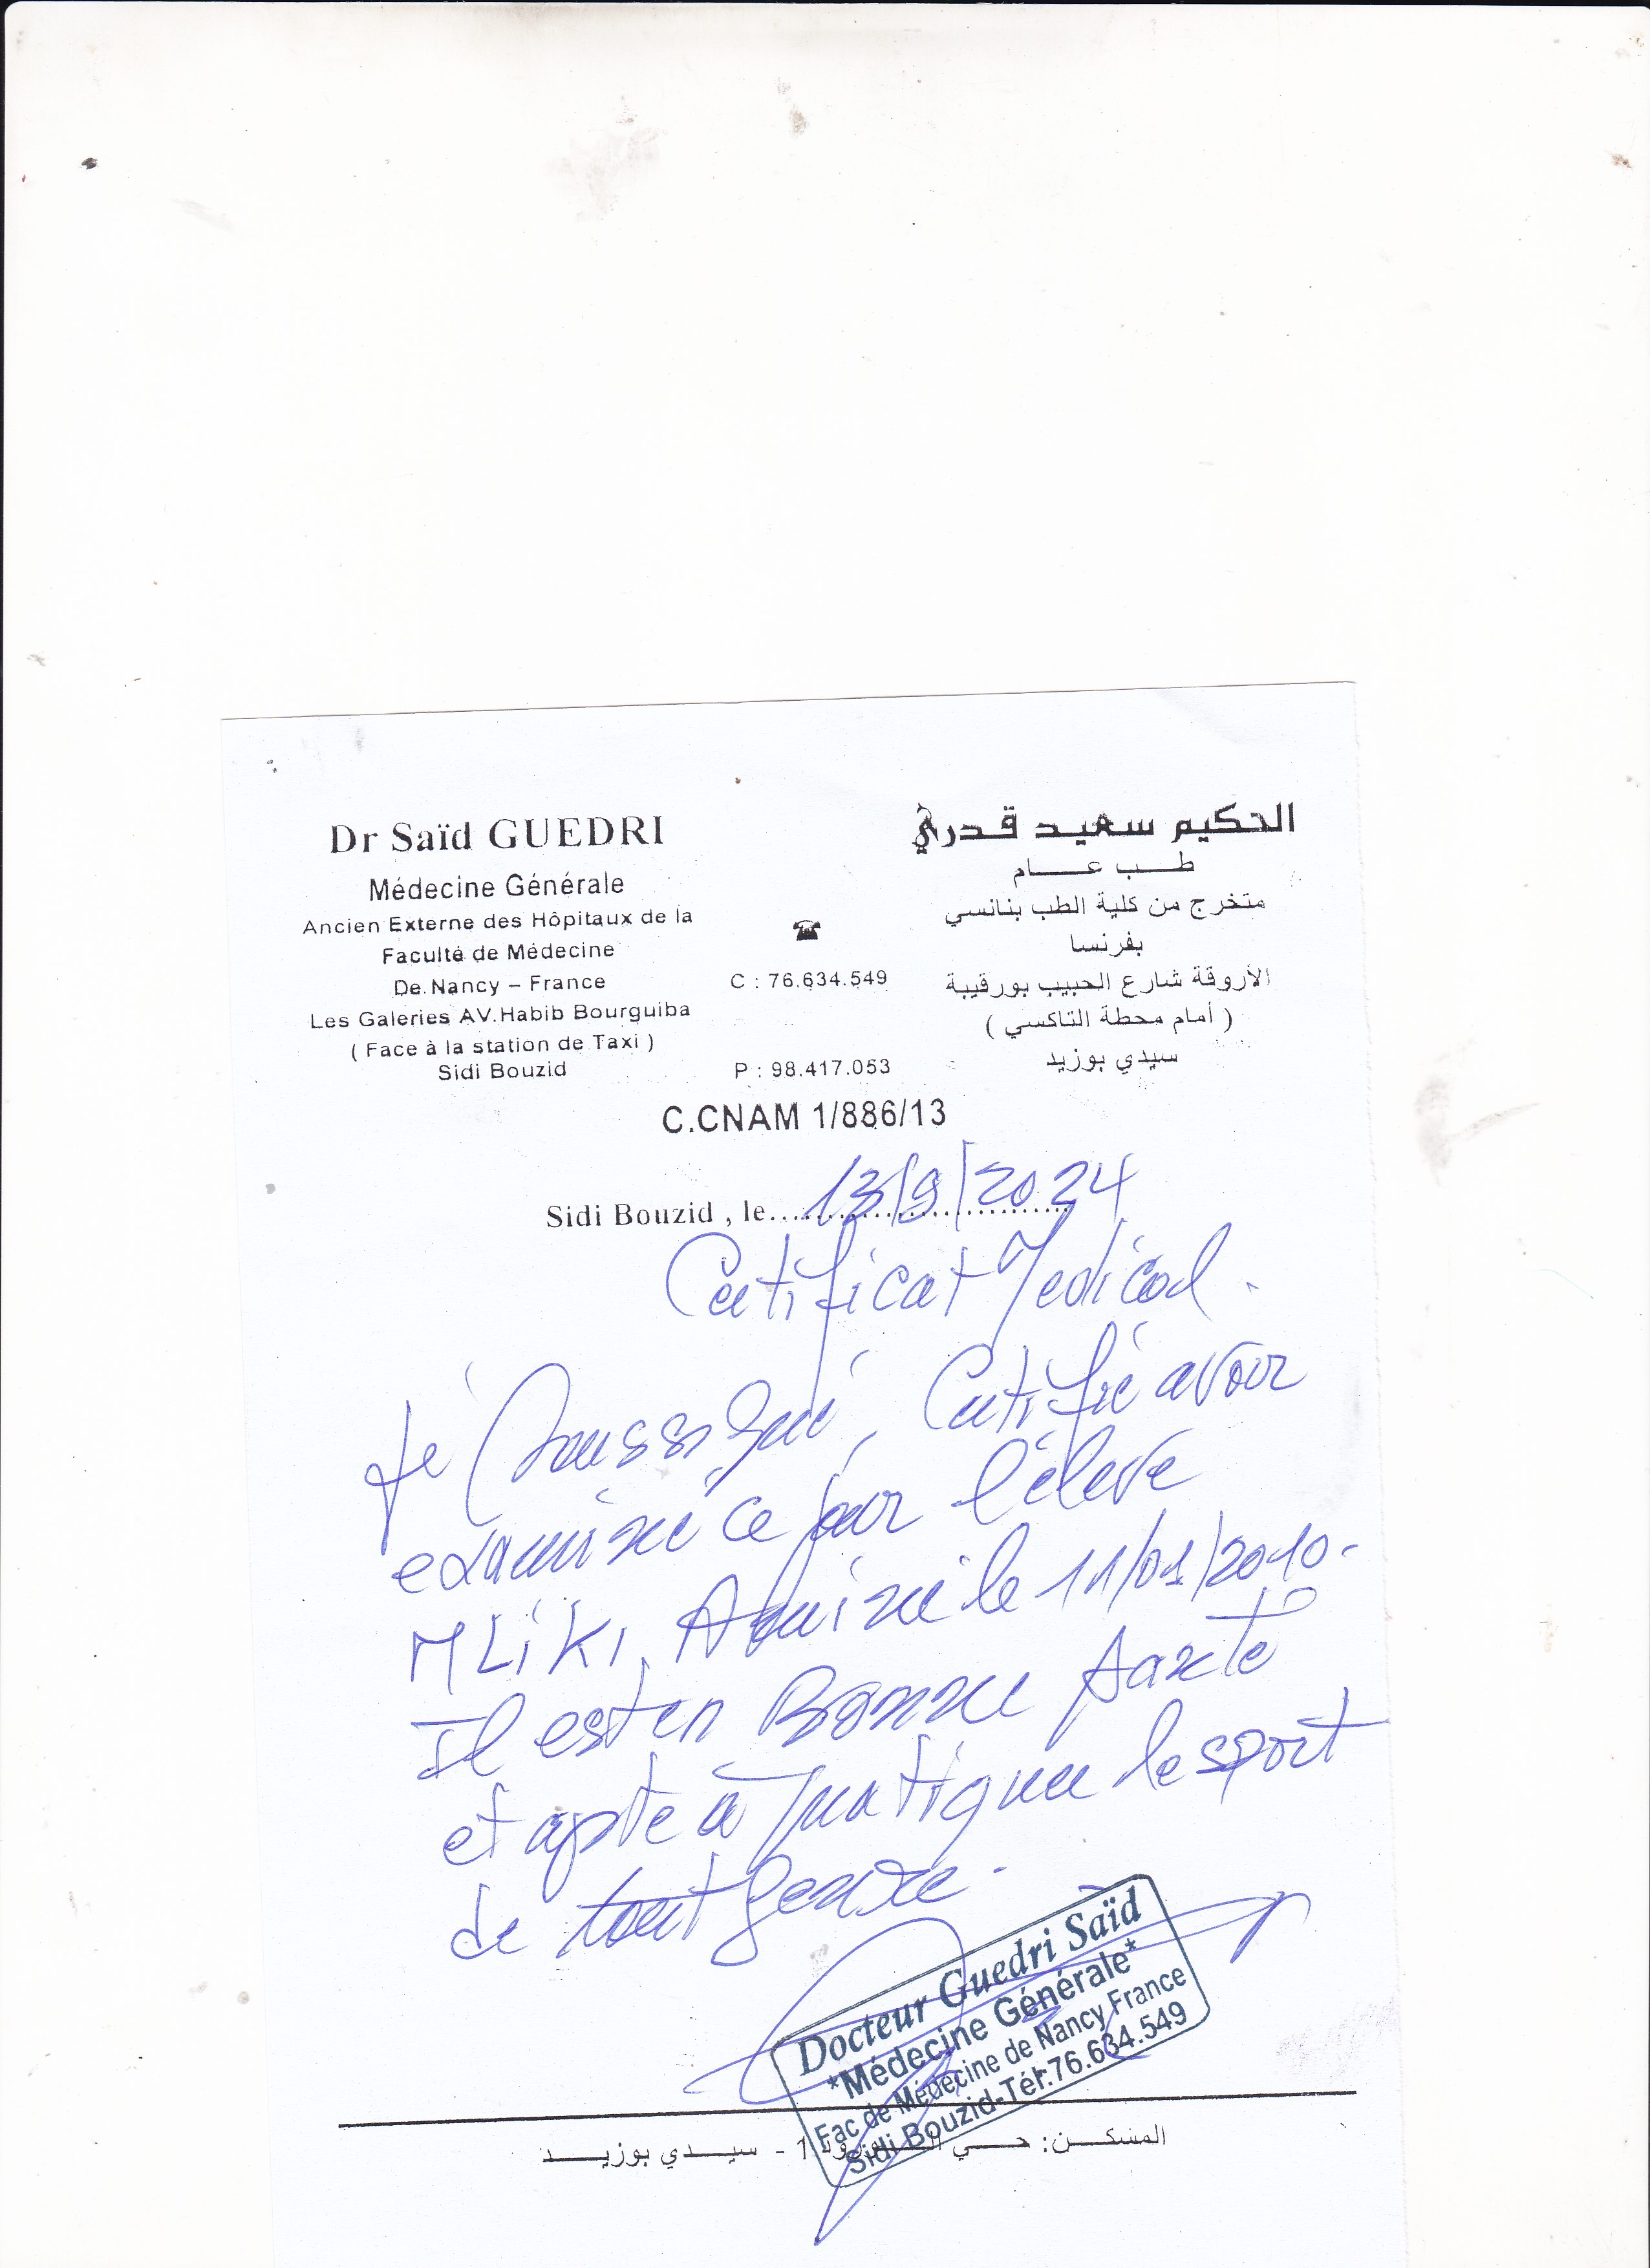 Dr Saïd GUEDRI
Médecine Générale
Ancien Externe des Hôpitaux de la
Faculté de Médecine
De Nancy – France
Les Galeries AV.Habib Bourguiba
( Face à la station de Taxi )
Sidi Bouzid
☎
C : 76.634.549
P : 98.417.053
الحكيم سعيد قدري
طب عام
متخرج من كلية الطب بنانسي
بفرنسا
الأروقة شارع الحبيب بورقيبة
( أمام محطة التاكسي )
سيدي بوزيد
C.CNAM 1/886/13
Sidi Bouzid , le 13/9/2024
Certificat Medical.
Je Soussigné, Certifié avoir
examiné ce jour l'élève
MLiKi, Amine le 11/01/2010.
Il est en Bonne Santé
et apte à pratiquer le sport
de tout genre.
Docteur Guedri Saïd
*Médecine Générale*
Fac de Médecine de Nancy France
Sidi Bouzid-Tél:76.634.549
المسكن: حي 1 - سيدي بوزيد